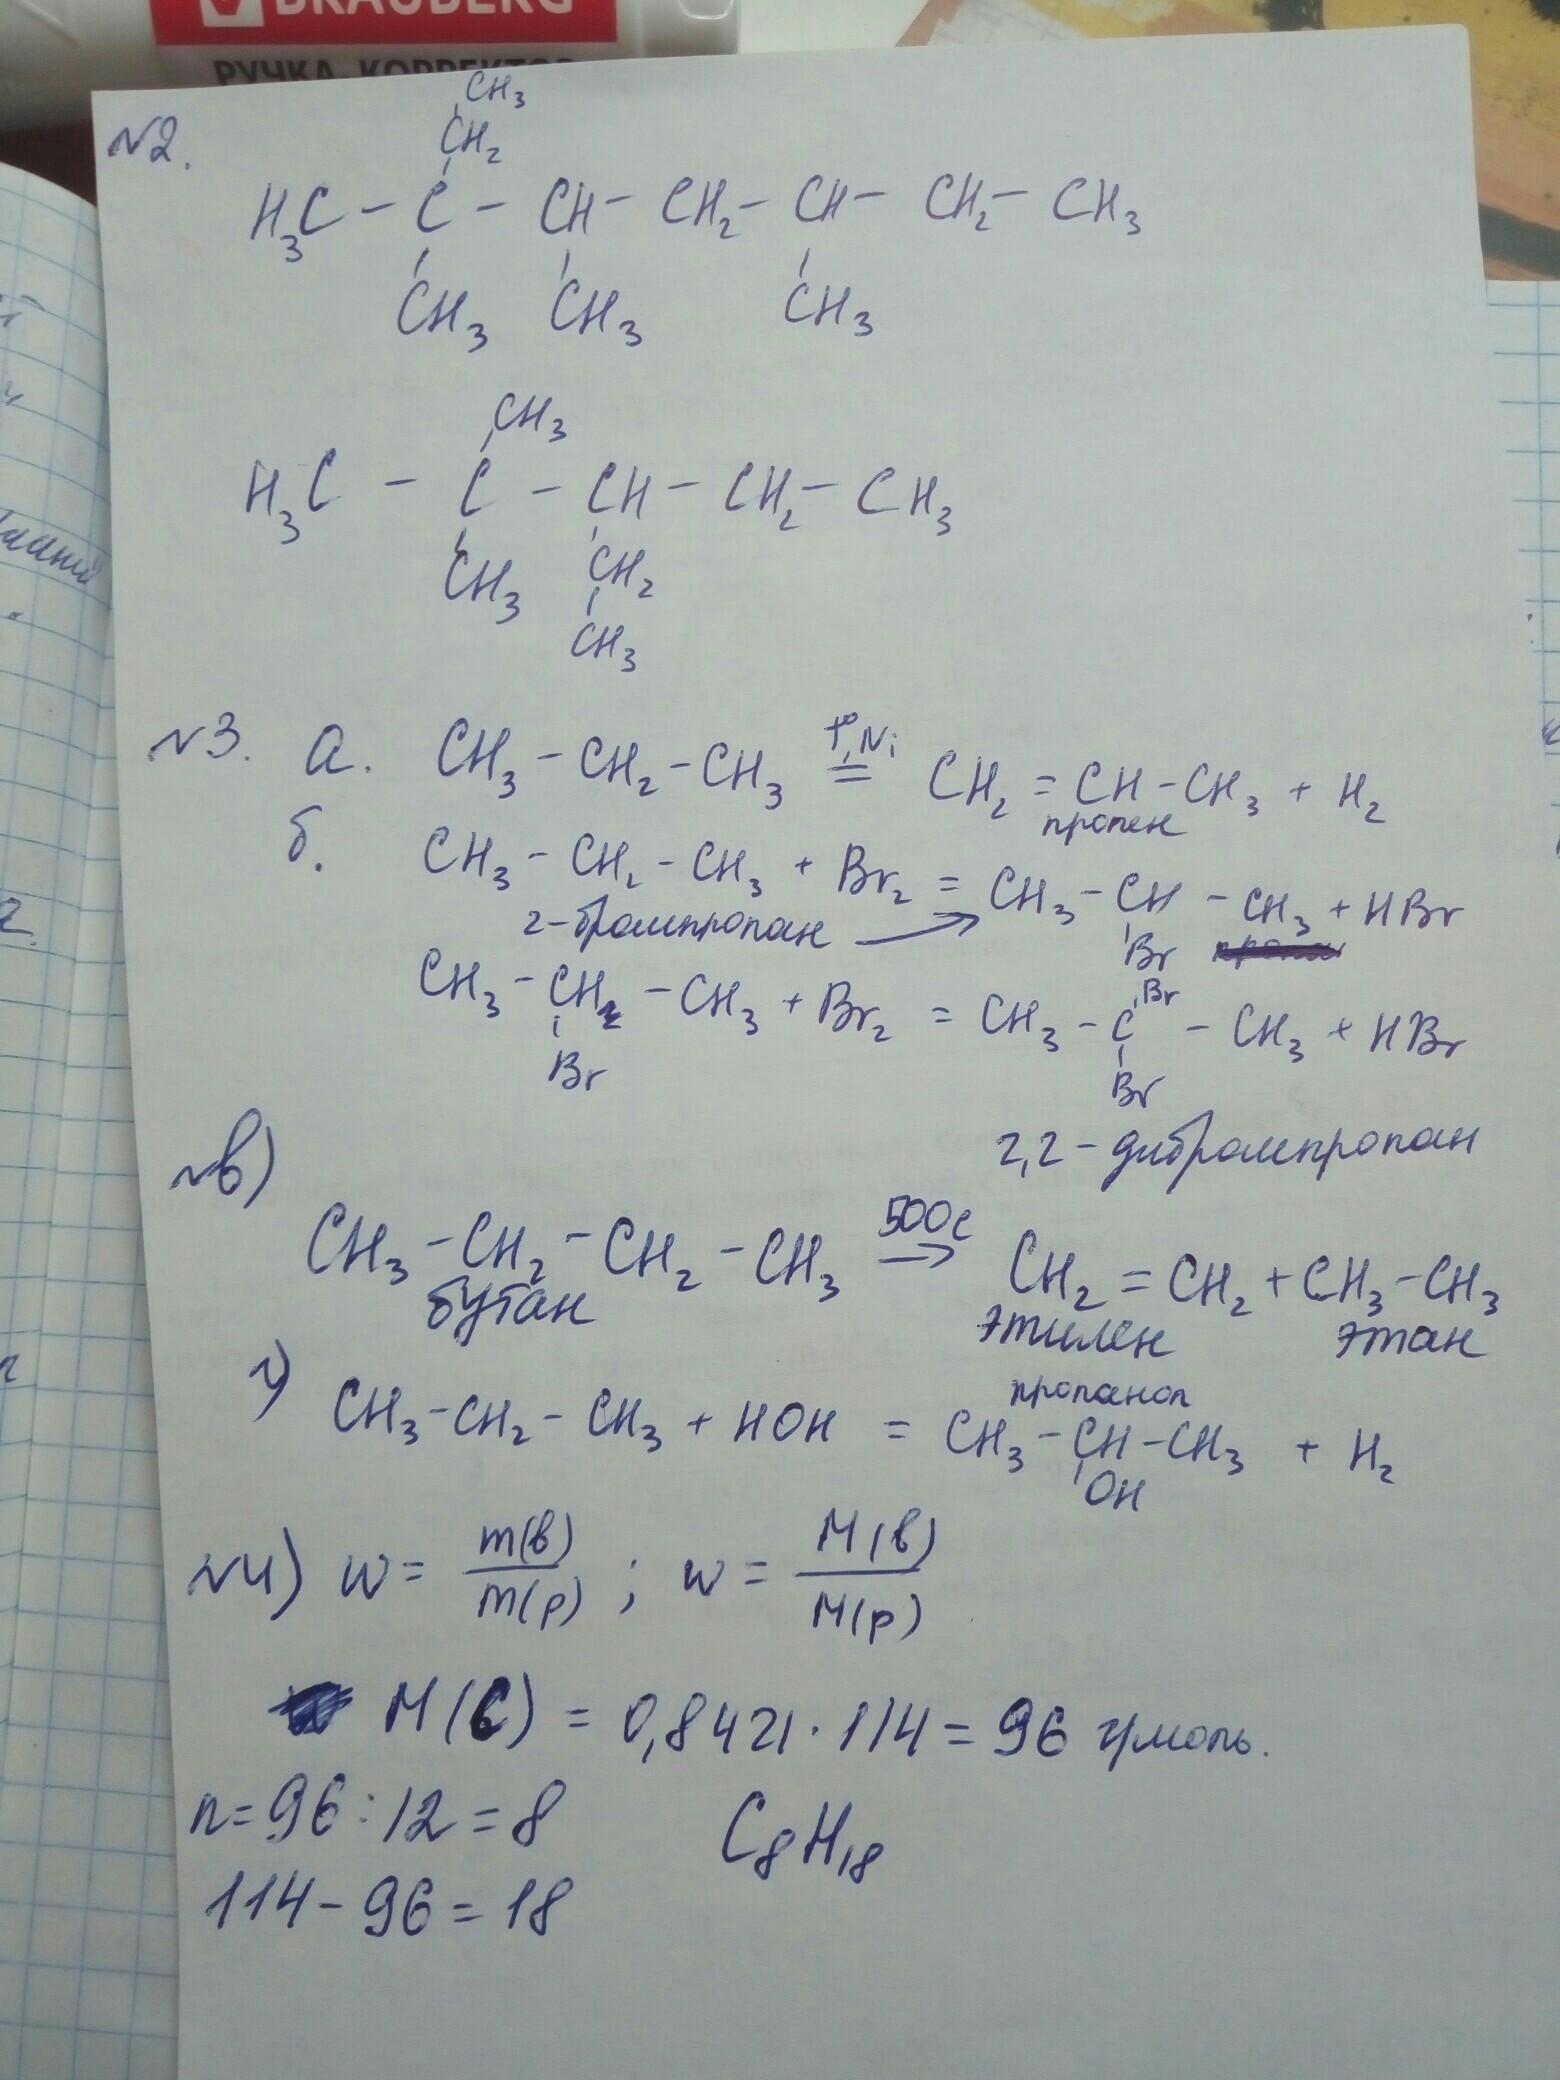 BRAUBERG
РУЧКА КОРРЕКТОР
CH3
№2. CH2
H3C - C - CH - CH2 - CH - CH2 - CH3
CH3 CH3 CH3
CH3
H3C - C - CH - CH2 - CH3
CH3 CH2
CH3
№3. а. CH3 - CH2 - CH3 t°, Ni = CH2 = CH - CH3 + H2
пропен
б. CH3 - CH2 - CH3 + Br2 = CH3 - CH - CH3 + HBr
2-бромпропан → Br
CH3 - CH - CH3 + Br2 = CH3 - C - CH3 + HBr
Br Br
Br
2,2 - дибромпропан
№в)
CH3 - CH2 - CH2 - CH3 500c → CH2 = CH2 + CH3 - CH3
бутан этилен этан
г) пропанол
CH3 - CH2 - CH3 + HOH = CH3 - CH - CH3 + H2
OH
№4) w = m(в)/m(р) ; w = M(в)/M(р)
M(C) = 0,8421 · 114 = 96 г/моль.
n = 96 : 12 = 8 C8H18
114 - 96 = 18